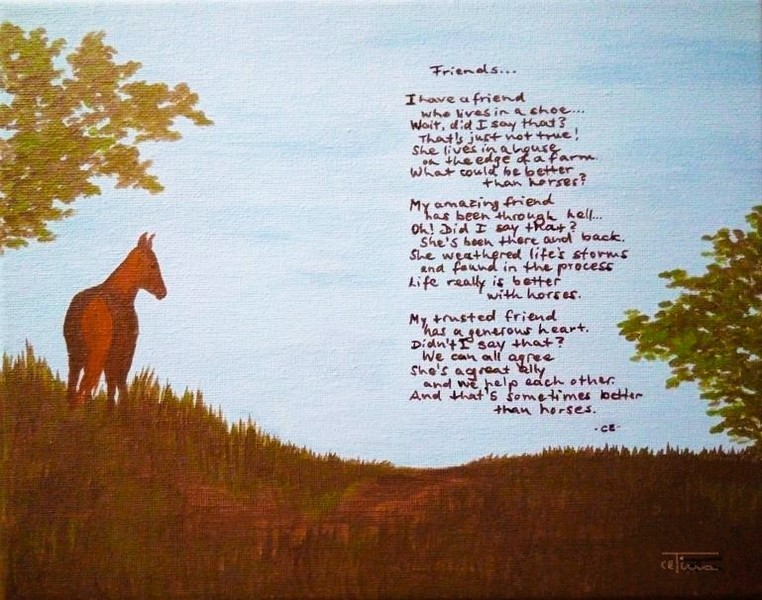 Friends...
I have a friend
who lives in a shoe...
Wait, did I say that?
That's just not true!
She lives in a house
on the edge of a farm.
What could be better
than horses?
My amazing friend
has been through hell...
Oh! Did I say that?
She's been there and back.
She weathered life's storms
and found in the process
Life really is better
with horses.
My trusted friend
has a generous heart.
Didn't I say that?
We can all agree
She's a great ally
and we help each other.
And that's sometimes better
than horses.
-CE-
CETirva